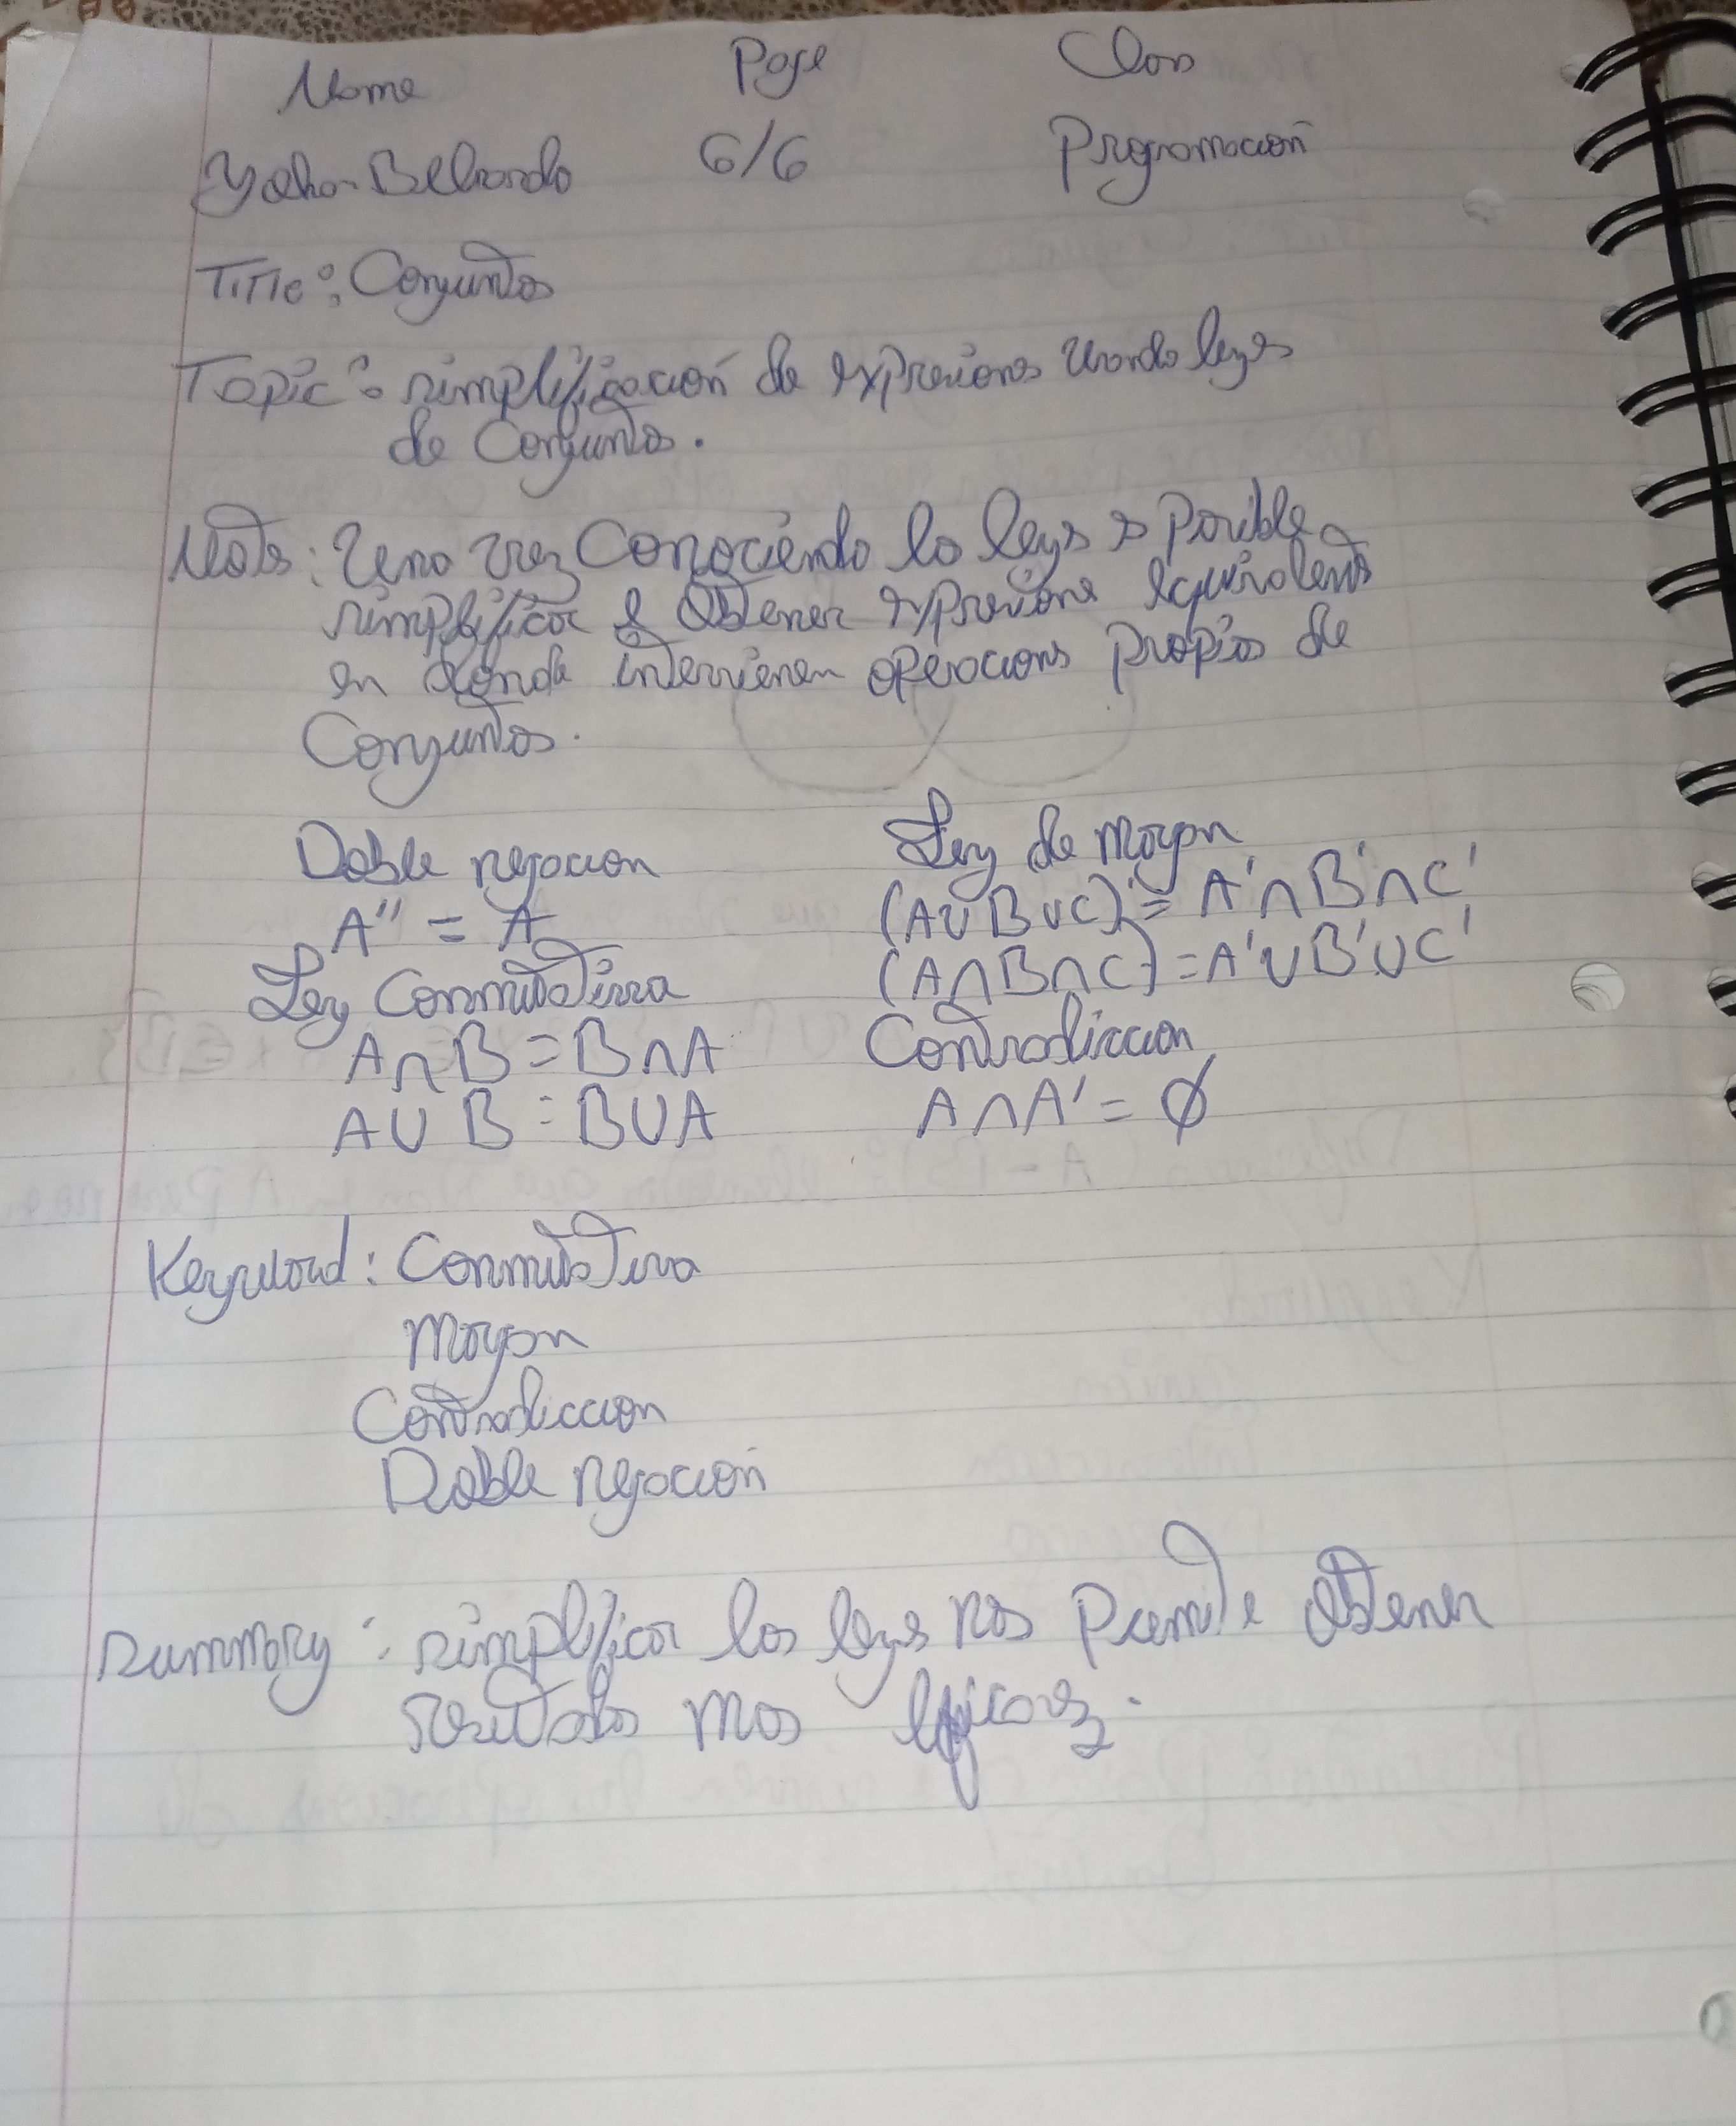 Name Page Class
Belrando 6/6 Programación
Title: Conjuntos
Topic: simplificación de expresiones usando leyes
de Conjuntos.
Notes: Una vez Conociendo la leys es posible
simplificar e obtener expresione equivalents
en donde intervienen operacions propias de
Conjuntos.
Doble negacion
A'' = A
Ley Conmutativa
A∩B = B∩A
A∪B = B∪A
Ley de Morgan
(A∪B∪C)' = A'∩B'∩C'
(A∩B∩C)' = A'∪B'∪C'
Contradiccion
A∩A' = Ø
Keyword: Conmutativa
Morgan
Contradiccion
Doble negación
summary: simplificar las leyes nos permite obtener
mas eficaz.